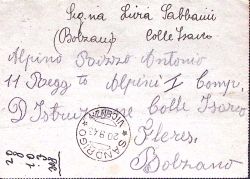 Sig.na Livia Sabbaini
(Bolzano Colle Isarco
Alpino Rizzo Antonio
11 Regg to Alpini I Comp.
D'Istruzione Colle Isarco
Fleres
Bolzano
SANDRIGO
VICENZA